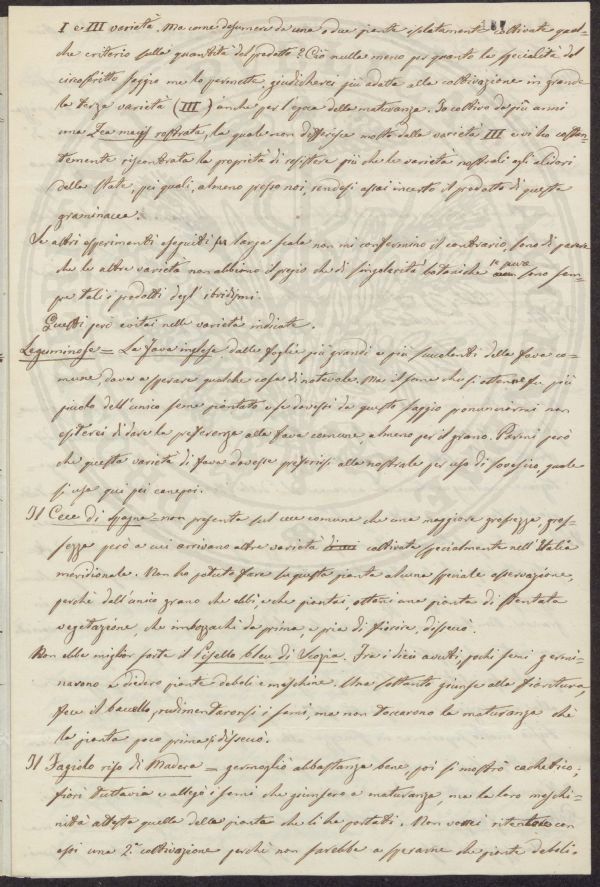 187
I e III varietà. Ma come desumere da una o due piante isolatamente coltivate qual-
che criterio sulla quantità del prodotto? Ciò nulla meno per quanto la specialità del
circoscritto saggio me lo permette, giudicherei più adatta alla coltivazione in grande
la terza varietà (III) anche per l'epoca della maturanza. Io coltivo da più anni
una Zea mays rostrata, la quale non differisce molto dalla varietà III e vi ho costan-
temente riscontrata la proprietà di resistere più che le varietà nostrali agli alidori
della state, pei quali, almeno presso noi, rendesi assai incerto il prodotto di questa
graminacea.
Se altri esperimenti eseguiti su larga scala non mi confermino il contrario, sono di parere
che le altre varietà non abbiano il pregio che di singolarità botaniche se pure sono sem-
pre tali i prodotti degl'ibridismi.
Questi però evitai nelle varietà indicate.
Leguminose = La fava inglese dalle foglie più grandi e più succulenti della fava co-
mune, dava a sperare qualche cosa di notevole. Ma il seme che si ottenne fu più
piccolo dell'unico seme piantato e se dovessi da questo saggio pronunciarmi non
esiterei di dare la preferenza alla fava comune, almeno per il grano. Parmi però
che questa varietà di fava dovesse preferirsi alla nostrale per uso di sovescio, quale
si usa qui pei canepai.
Il Cece di Spagna = non presenta sul cece comune che una maggiore grossezza, gros-
sezza però a cui arrivano altre varietà coltivate specialmente nell'Italia
meridionale. Non ho potuto fare su questa pianta alcuna speciale osservazione,
perchè dall'unico grano che ebbi, e che piantai, ottenni una pianta di stentata
vegetazione, che imbozzachì da prima, e pria di fiorire, disseccò.
Non ebbe miglior sorte il Pisello bleu di Scozia. Fra i dieci avuti, pochi semi germi-
narono e diedero piante deboli e meschine. Una soltanto giunse alla fioritura
fece il baccello, rudimentaronsi i semi, ma non toccarono la maturanza chè
la pianta poco prima disseccò.
Il Fagiolo riso di Madera = germogliò abbastanza bene, poi si mostrò cachetico;
fiorì tuttavia e allegò i semi che giunsero a maturanza, ma la loro meschi-
nità attesta quella della pianta che li ha portati. Non vorrei ritentare con
essi una 2.a coltivazione perchè non sarebbe a sperarne che piante deboli.